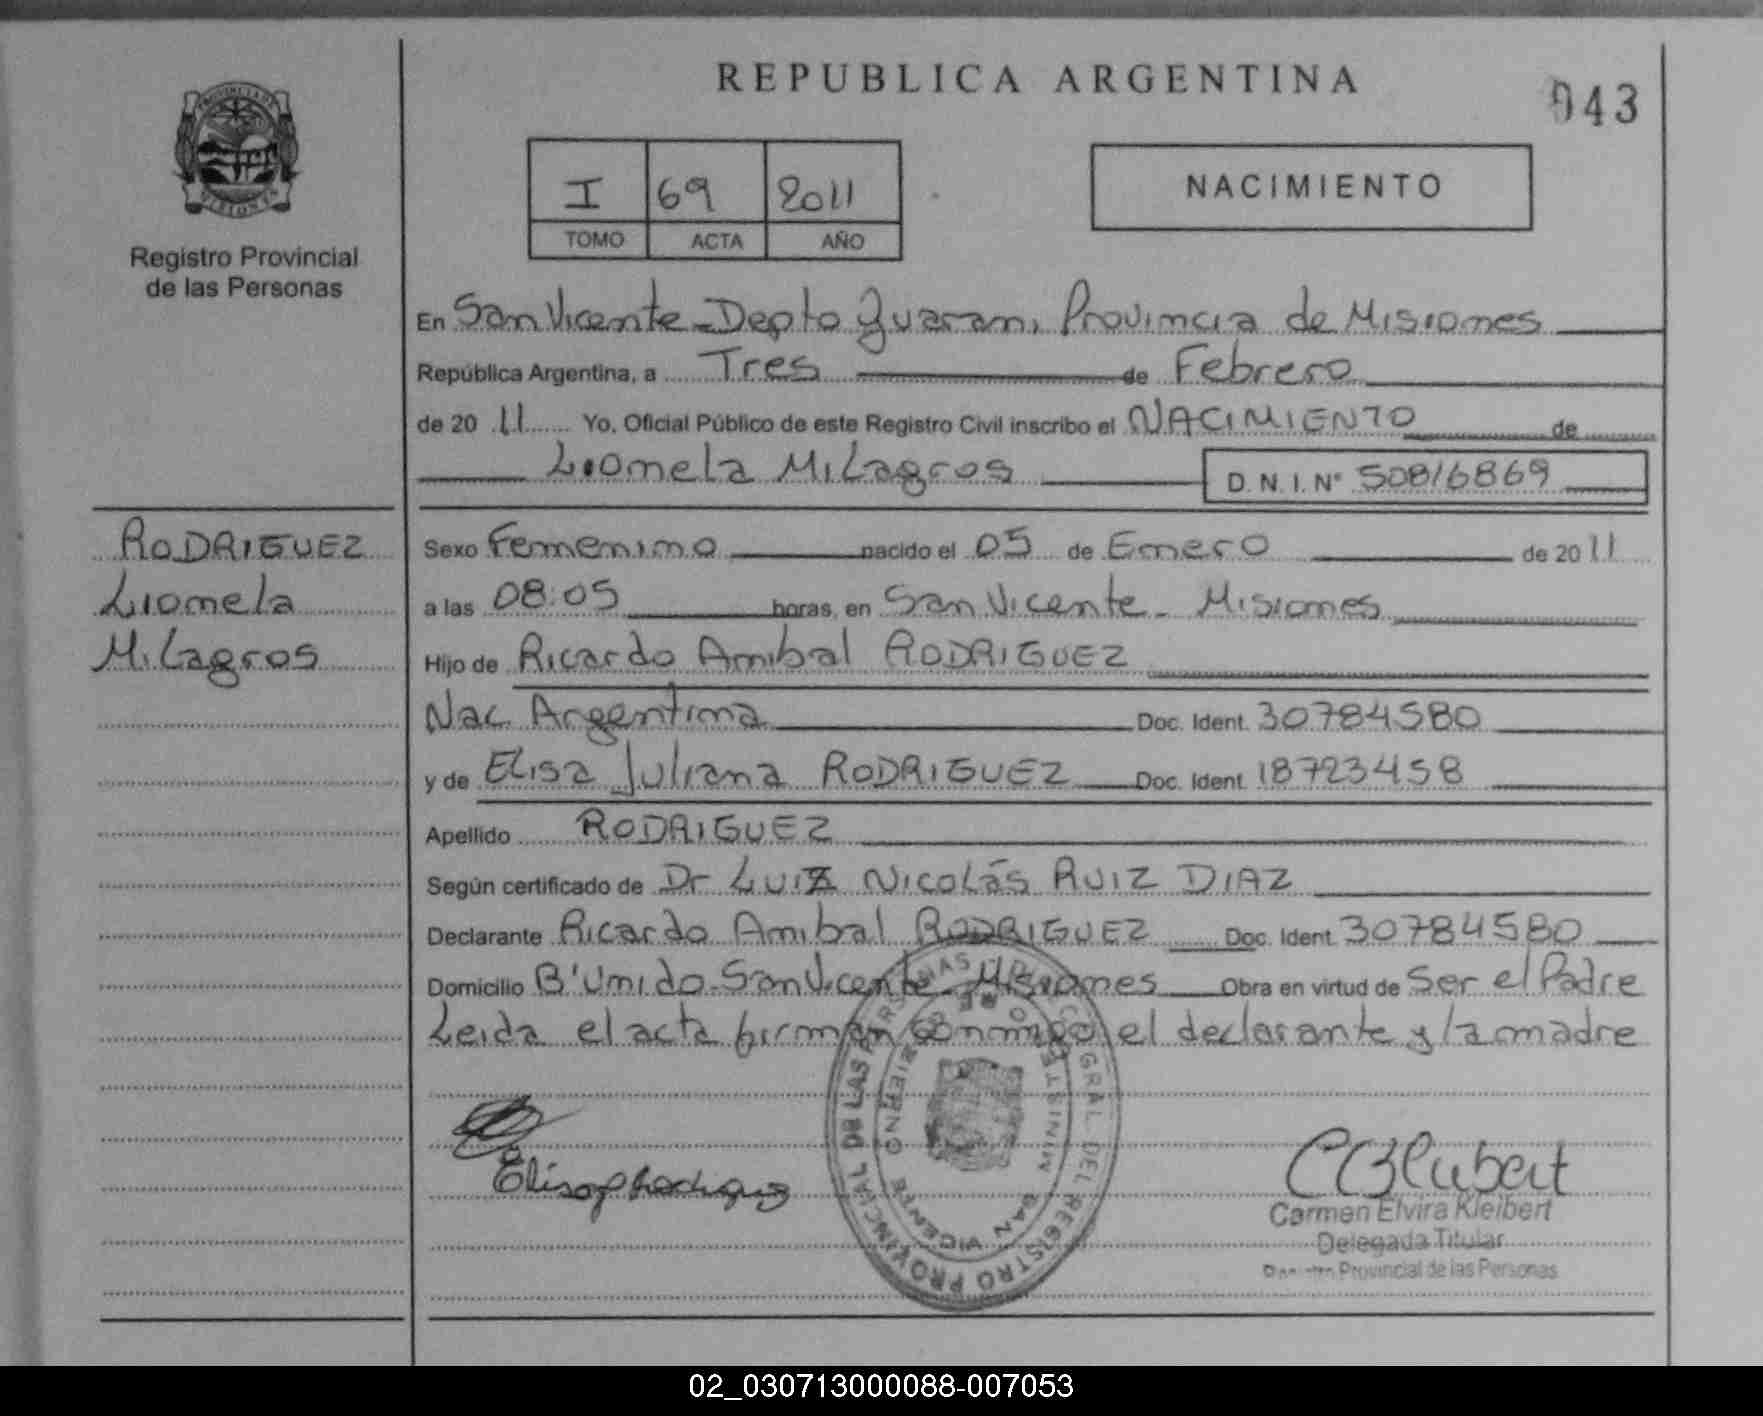 REPUBLICA ARGENTINA
043
PROVINCIA DE
MISIONES
Registro Provincial
de las Personas
I 69 2011
TOMO ACTA AÑO
NACIMIENTO
En San Vicente - Depto Guarani, Provincia de Misiones
República Argentina, a Tres de Febrero
de 20 11 Yo, Oficial Público de este Registro Civil inscribo el NACIMIENTO de
Lionela Milagros D.N.I. Nº 50816869
RODRIGUEZ
Lionela
Milagros
Sexo Femenino nacido el 05 de Enero de 20 11
a las 08:05 horas, en San Vicente - Misiones
Hijo de Ricardo Anibal RODRIGUEZ
Nac. Argentina Doc. Ident. 30784580
y de Elisa Juliana RODRIGUEZ Doc. Ident. 18723458
Apellido RODRIGUEZ
Según certificado de Dr Luiz Nicolás RUIZ DIAZ
Declarante Ricardo Anibal RODRIGUEZ Doc. Ident. 30784580
Domicilio B' Unido - San Vicente - Misiones Obra en virtud de Ser el Padre
Leida el acta firman conmigo el declarante y la madre
REGISTRO PROVINCIAL DE LAS PERSONAS
GRAL DEL
MINISTERIO DE GOBIERNO
SAN VICENTE
Carmen Elvira Kleibert
Delegada Titular
Registro Provincial de las Personas
02_030713000088-007053